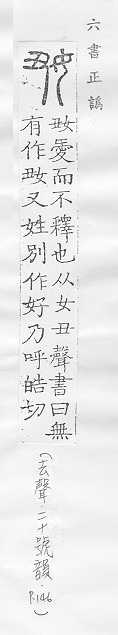 六書正譌
愛而不釋也从女丑聲書曰無
有作又姓別作好乃呼皓切
(去聲·二十號韻 P.146)